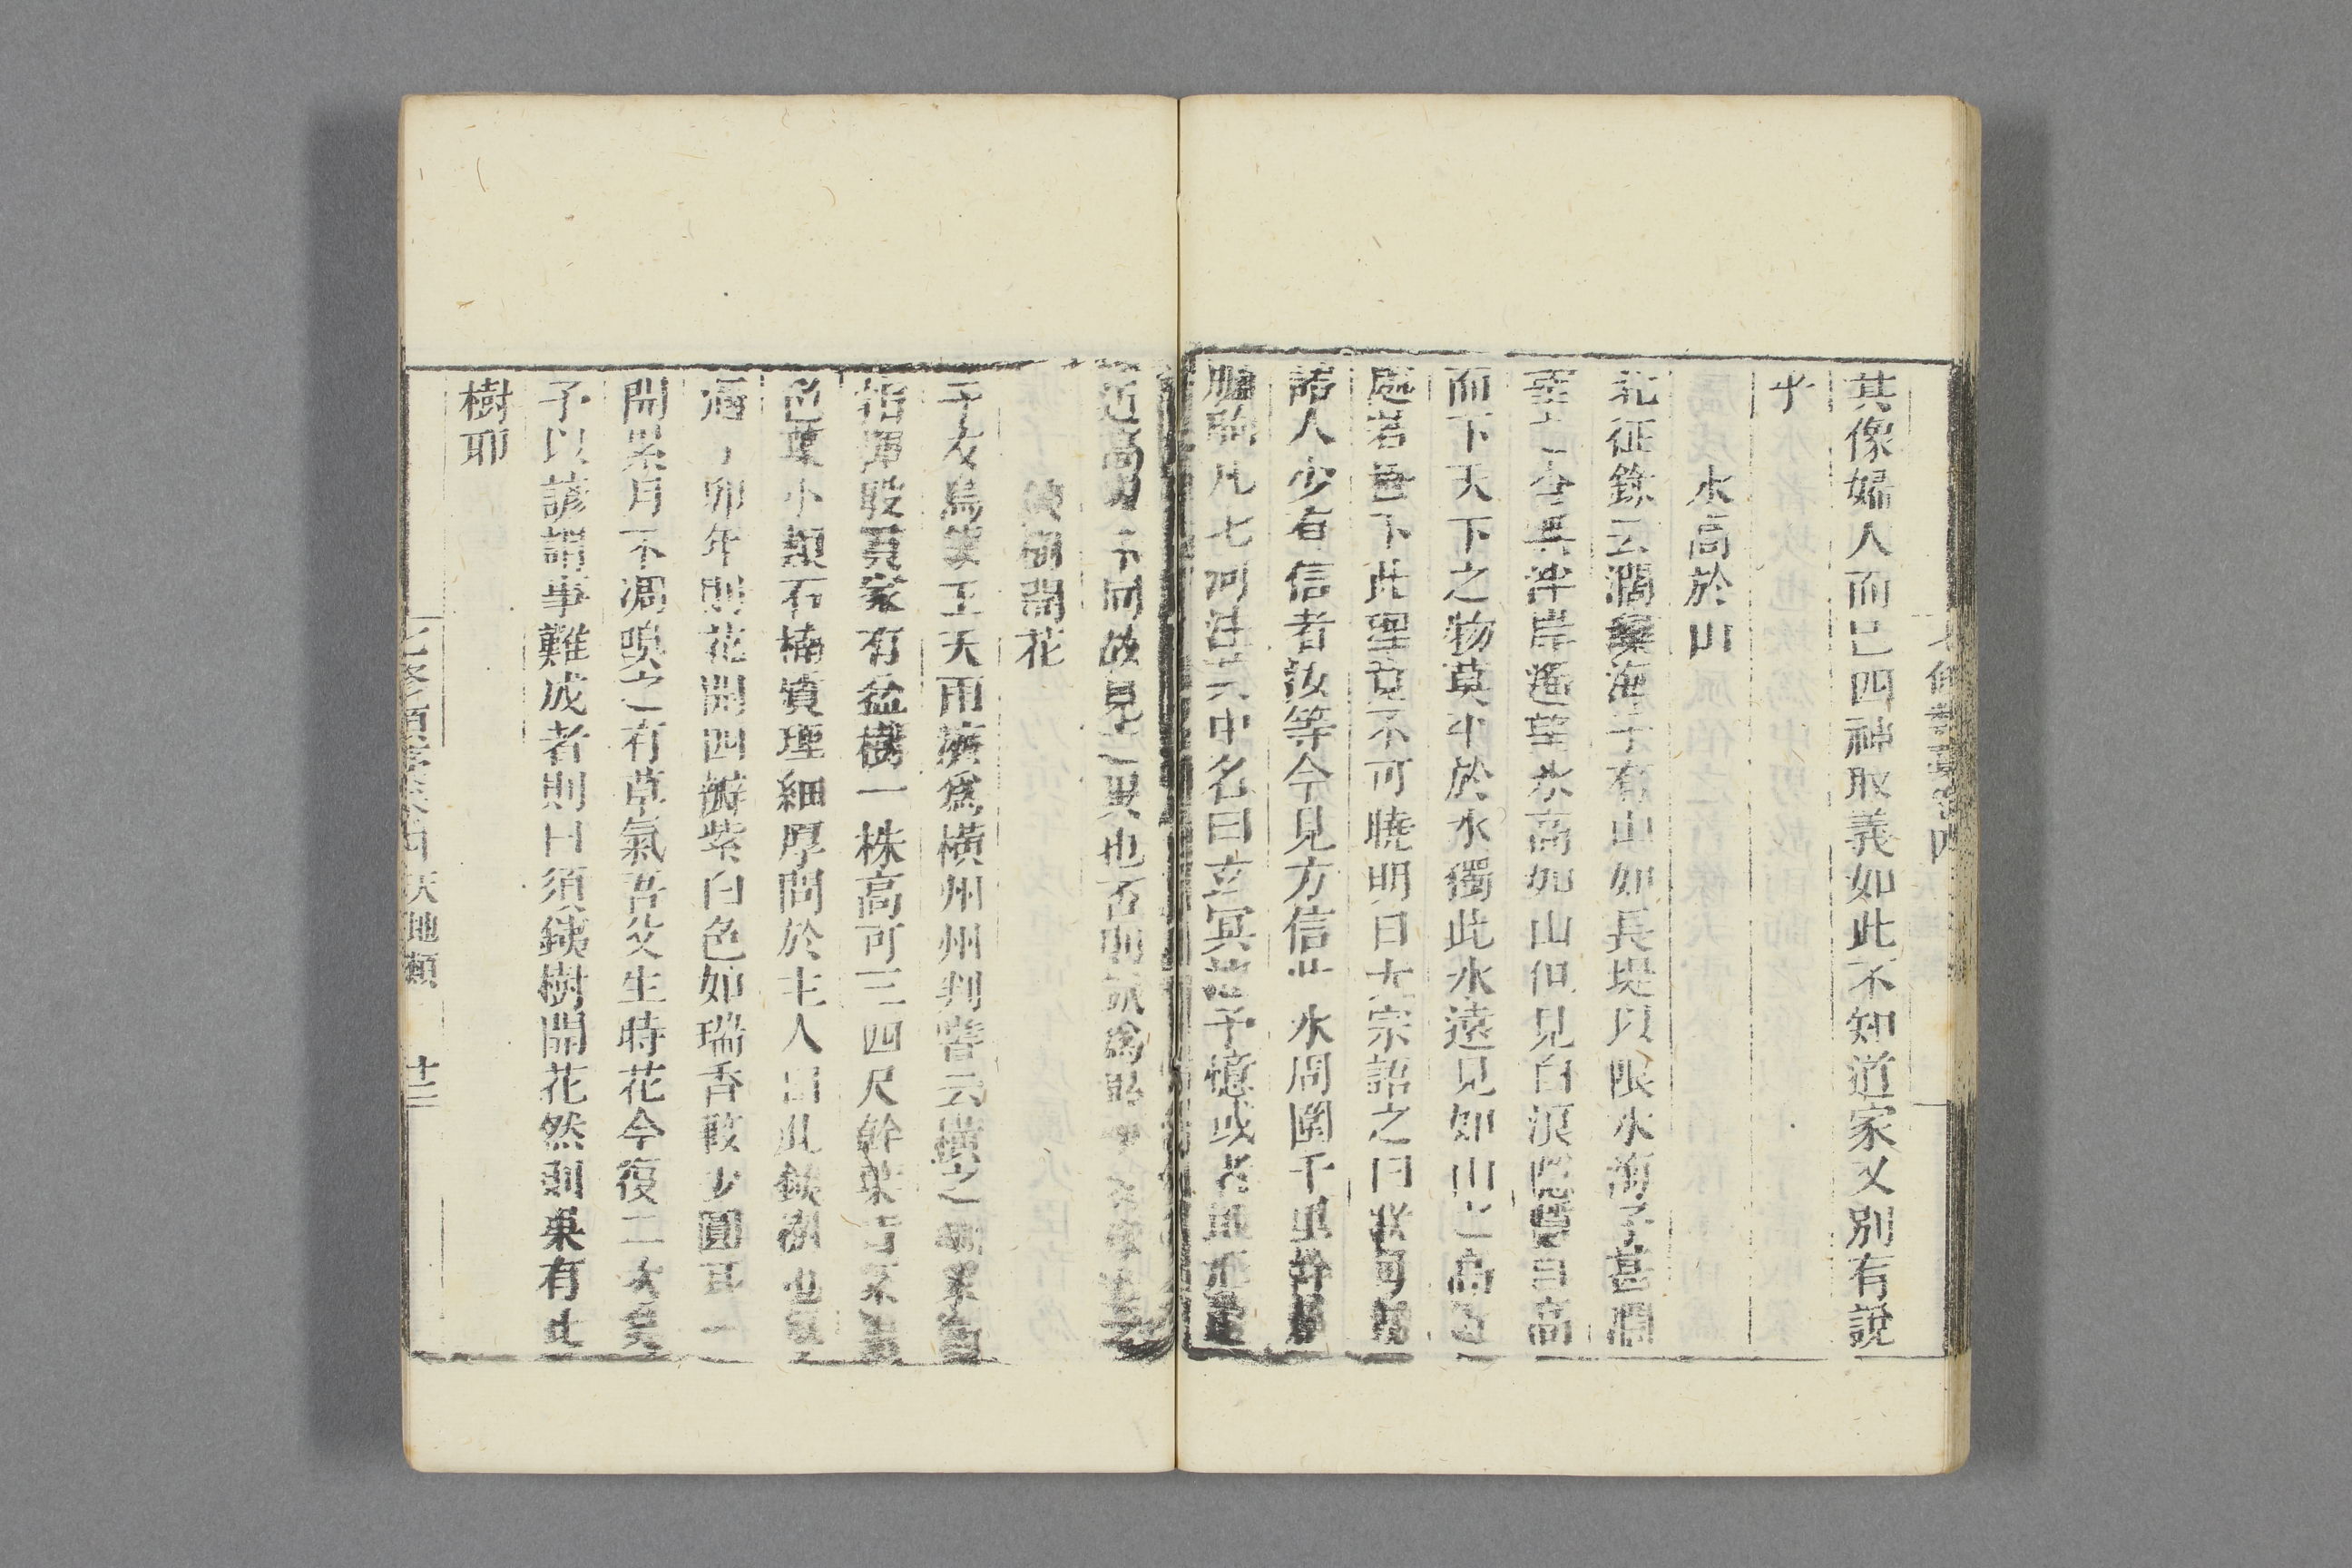 其像婦人而已四神取義如此不知道家又別有說
乎
水高於山
北征錄云濶灤海子有山如長堤以限水海子甚濶
望之者無涯岸遙望水高如山但見白浪隱隱自高
而下天下之物莫平於水獨此水遠見如山之高
處若巻下此理竟不可曉明日太宗詔之曰
諸人少有信者汝等今見方信此水周圍千里
臚駒凡七河注其中名曰玄冥池予憶或者地
近高
不同故見之異也否則
樹開花
予友王天雨濟為橫州州判嘗云橫之
指揮殷貫家有盆樹一株高可三四尺幹葉皆
色葉小類石楠質理細厚問於主人曰此鐵樹也
遇丁卯年則花開四瓣紫白色如瑞香瓣少圓耳一
開累月不凋嗅之有草氣吾父生時花今復二次矣
予以諺謂事難成者則曰須鐵樹開花然則果有此
樹耶
七修類藁卷四 天地類 十二